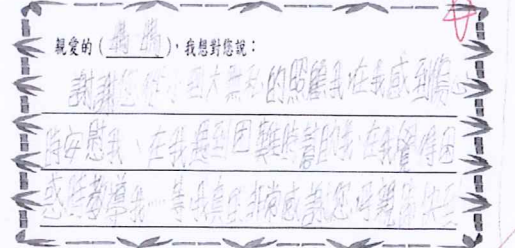 親愛的(媽媽),我想對您說:
謝謝您從小到大無私的照顧我,在我感到傷心
時安慰我、在我遇到困難時幫助我、在我覺得困
惑時教導我…等,我真的非常感謝您,母親節快樂